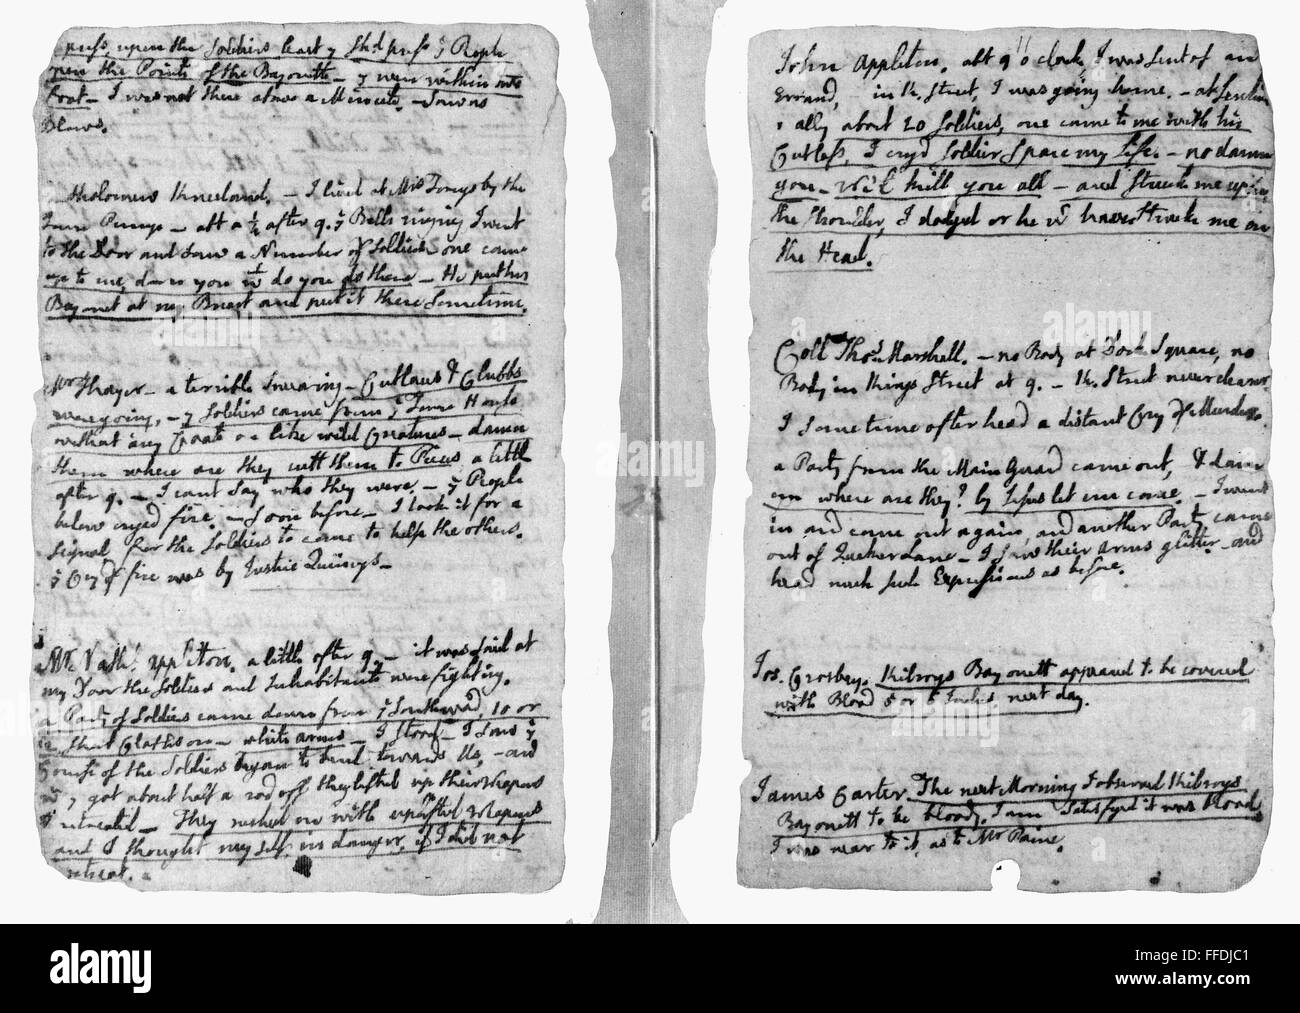 press, upon the Soldiers least & shd press ye People
upon the Points of the Bayonetts — & were within
foot — I was not there above a Minute. — saw no
Blows.
tholomew Kneeland. — I lived at Mrs Torreys by the
Town Pump — abt a ½ after 9. ye Bells ringing I went
to the Door and saw a Number of Soldiers one came
up to me, damn you wt do you do there — He put his
Bayonet at my Breast and put it there sometime.
Mr Thayer — a terrible swearing — Cutlasses & Clubbs
were going, — 7 Soldiers came from ye Town House
without any Coats on like wild Creatures — damn
them where are they cutt them to Pieces a little
after 9. — I cant say who they were. — ye People
below cryed fire. — soon before — I took it for a
signal for the Soldiers to come to help the others.
ye Cry of fire was by Justice Quincys —
Mr Nathl. Appleton. a little after 9 — it was said at
my Door the Soldiers and Inhabitants were fighting.
a Party of Soldiers came down from ye Southward, 10 or
12, short Cloaths on — white arms — I stood — I saw ye
Course of the Soldiers began to bend towards Us, — and
wn ye got about half a rod off they lifted up their Weapons
retreated — They rushed on with uplifted Weapons
and I thought myself in danger, if I did not
retreat.
John Appleton. abt 9 o clock I was sent of an
Errand, in K. Street, I was going home. —
ally about 20 Soldiers, one came to me with his
Cutlass, I cryd Soldier Spare my life. — no damn
you — we'l kill you all — and Struck me upon
the Shoulder, I dodged or he wd have struck me on
the Head.
Coll Thos Marshall. — no Body at Dock Square, no
Body in Kings Street at 9. — K. Street never clearer
I sometime after heard a distant Cry of Murder.
a Party from the Main Guard came out, & damn
em where are they? by Jesus let em come. — I went
in and came out again, and another Party came
out of Quaker Lane — I saw their arms glitter — and
heard much such Expressions as before.
Jos. Crosbey. Kilroys Bayonett appeared to be covered
with Blood 5 or 6 Inches next day.
James Carter. The next Morning I observed Kilroys
Bayonett to be bloody. I am Satisfyed it was blood
I was near to it, as to Mr Paine.
alamy
alamy
alamy
alamy
alamy
alamy
alamy
alamy
alamy
alamy
Image ID: FFDJC1
www.alamy.com